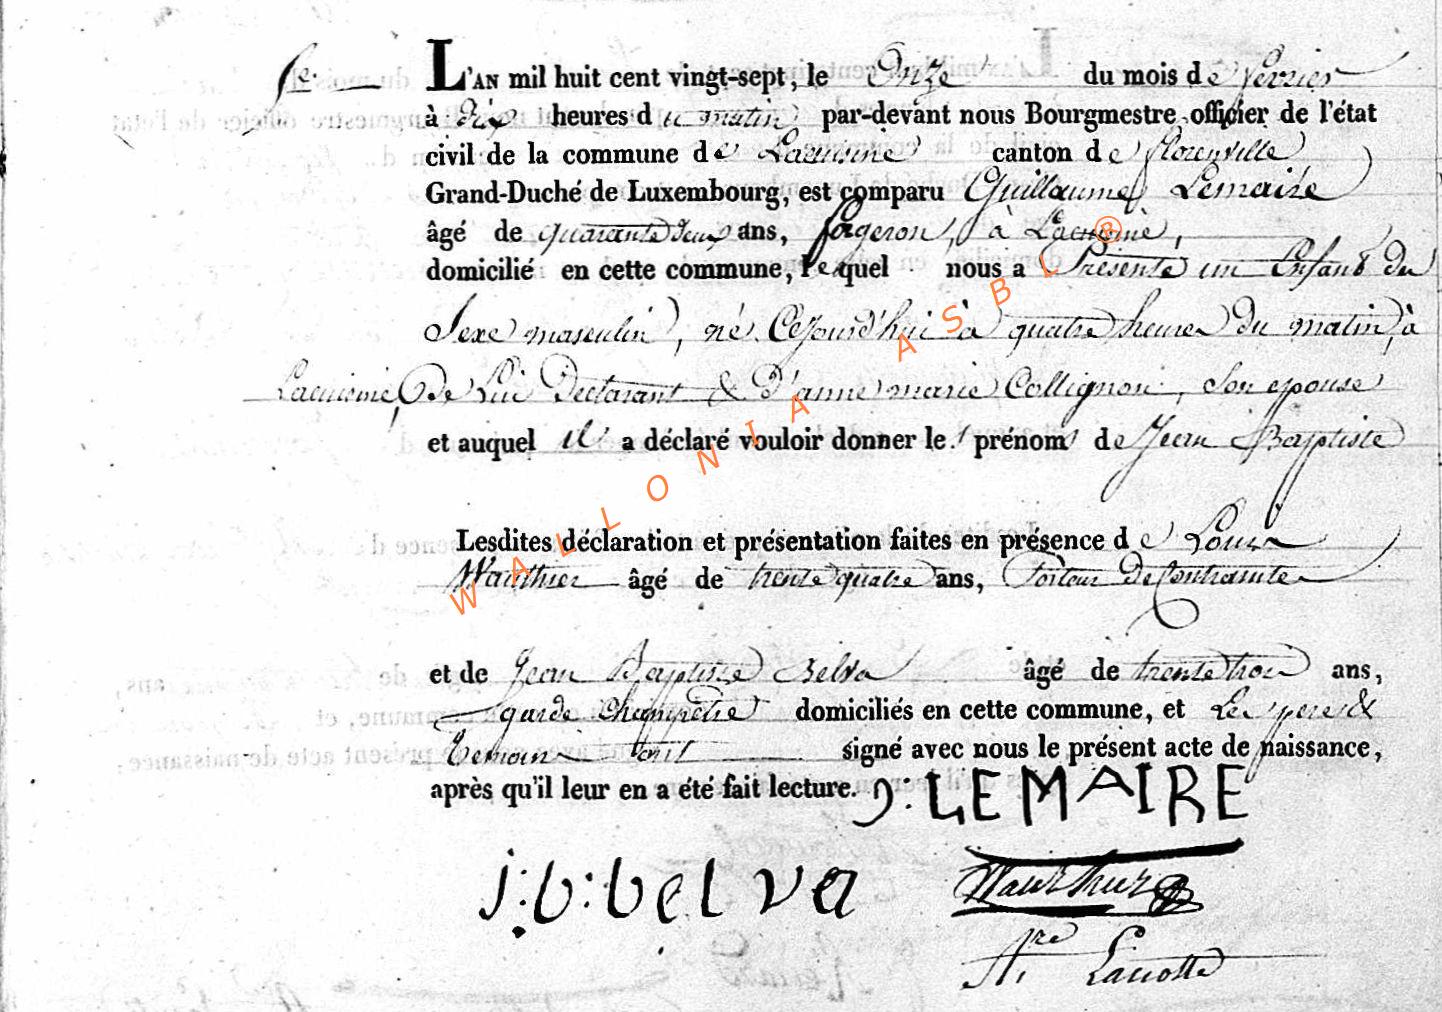 L'AN mil huit cent vingt-sept, le Onze du mois de fevrier
à Dix heures du matin par-devant nous Bourgmestre officier de l'état
civil de la commune de Lacuisine canton de florenville
Grand-Duché de Luxembourg, est comparu Guillaume Lemaire
âgé de quarante deux ans, forgeron, à Lacuisine,
domicilié en cette commune, lequel nous a Présenté un Enfant du
Sexe masculin, né Cejourd'hui à quatre heures du matin, à
Lacuisine, De Lui Declarant & D'anne marie Collignon, son epouse
et auquel il a déclaré vouloir donner les prénoms de Jean Baptiste
Lesdites déclaration et présentation faites en présence de Louis
Wauthier âgé de trente quatre ans, Porteur De Contraintes
et de Jean Baptiste Belva âgé de trente trois ans,
garde champêtre domiciliés en cette commune, et Les pere &
Temoins ont signé avec nous le présent acte de naissance,
après qu'il leur en a été fait lecture. G: LEMAIRE
j:b:belva Wauthier
Lacrosse
WALLONIA ASBL ®